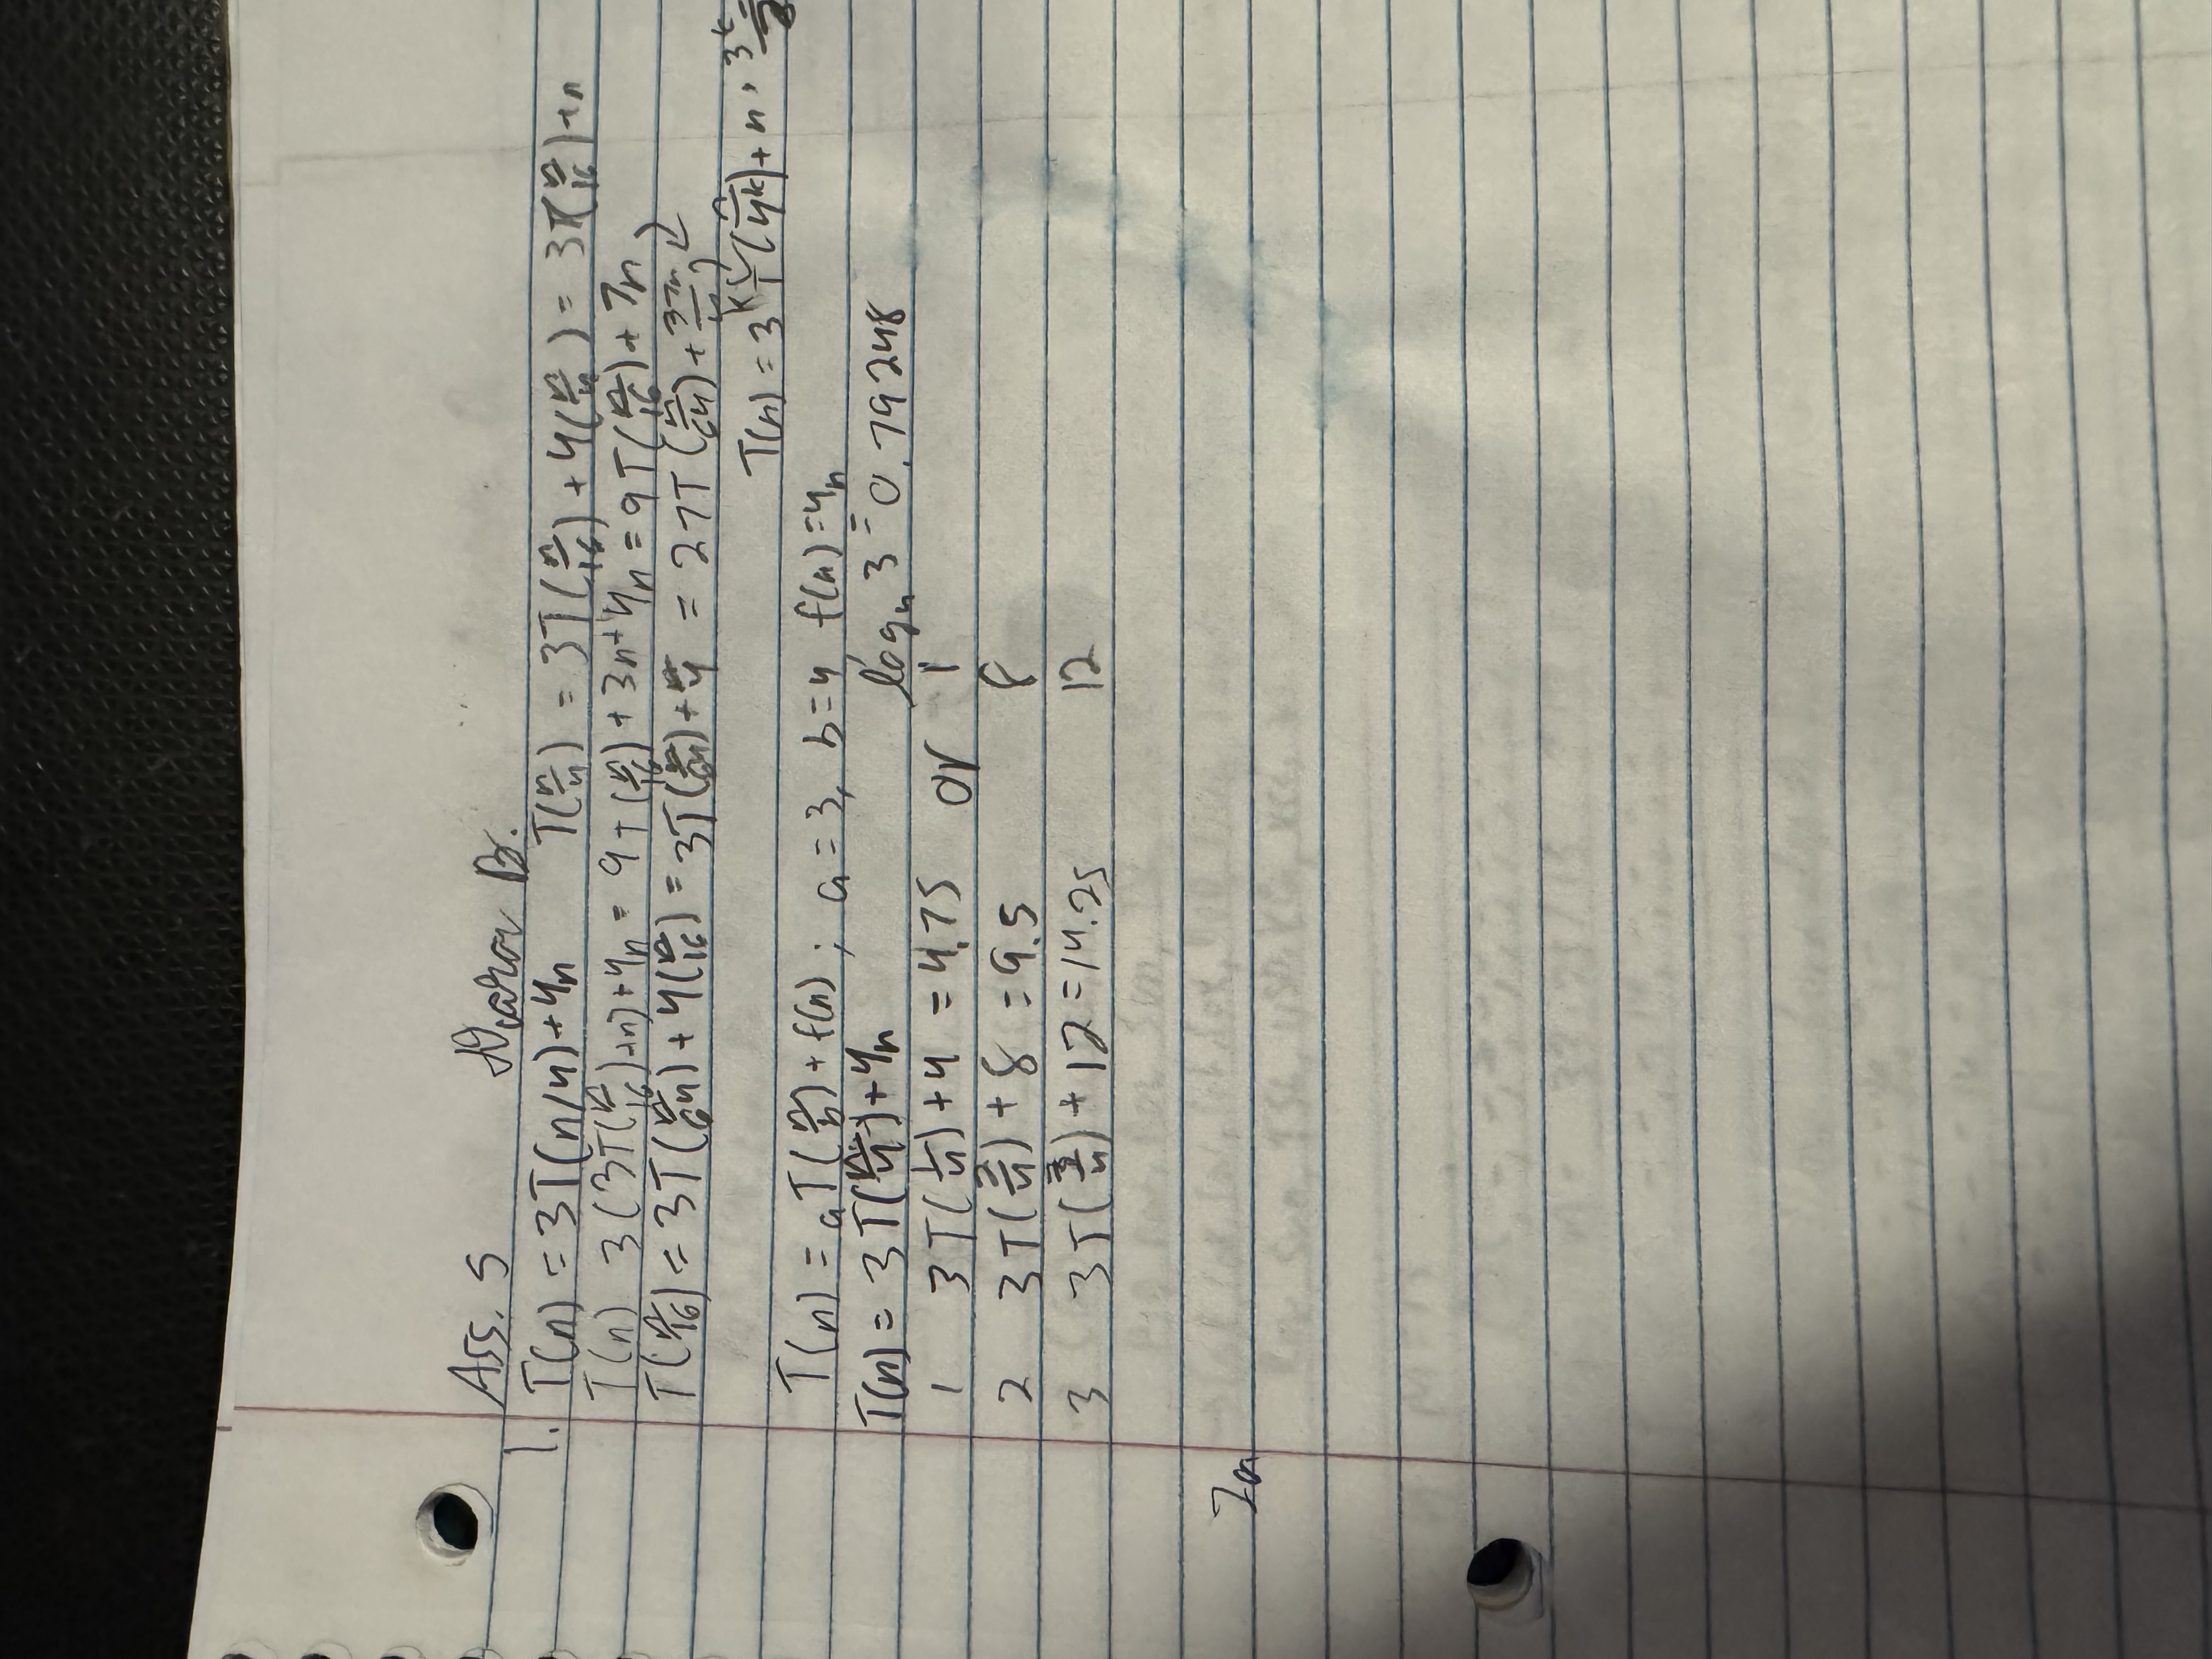 Ass. 5 B.
1. T(n) = 3T(n/4)+4n T(n/4) = 3T(n/16) + 4(n/4) = 3T(n/16)+n
T(n) 3(3T(n/16)+n)+4n = 9T(n/16) + 3n+4n = 9T(n/16) + 7n
T(n/16) = 3T(n/64) + 4(n/16) = 3T(n/64) + n/4 = 27T(n/64) + 37n/4
T(n) = 3^k T(n/4^k) + n · 3^k
T(n) = aT(n/b) + f(n) ; a = 3, b=4, f(n)=4n
T(n) = 3T(n/4)+4n log₄ 3 = 0.79248
1 3T(1/4)+4 = 4.75 or 1
2 3T(2/4) + 8 = 9.5 8
3 3T(3/4) + 12 = 14.25 12
2a